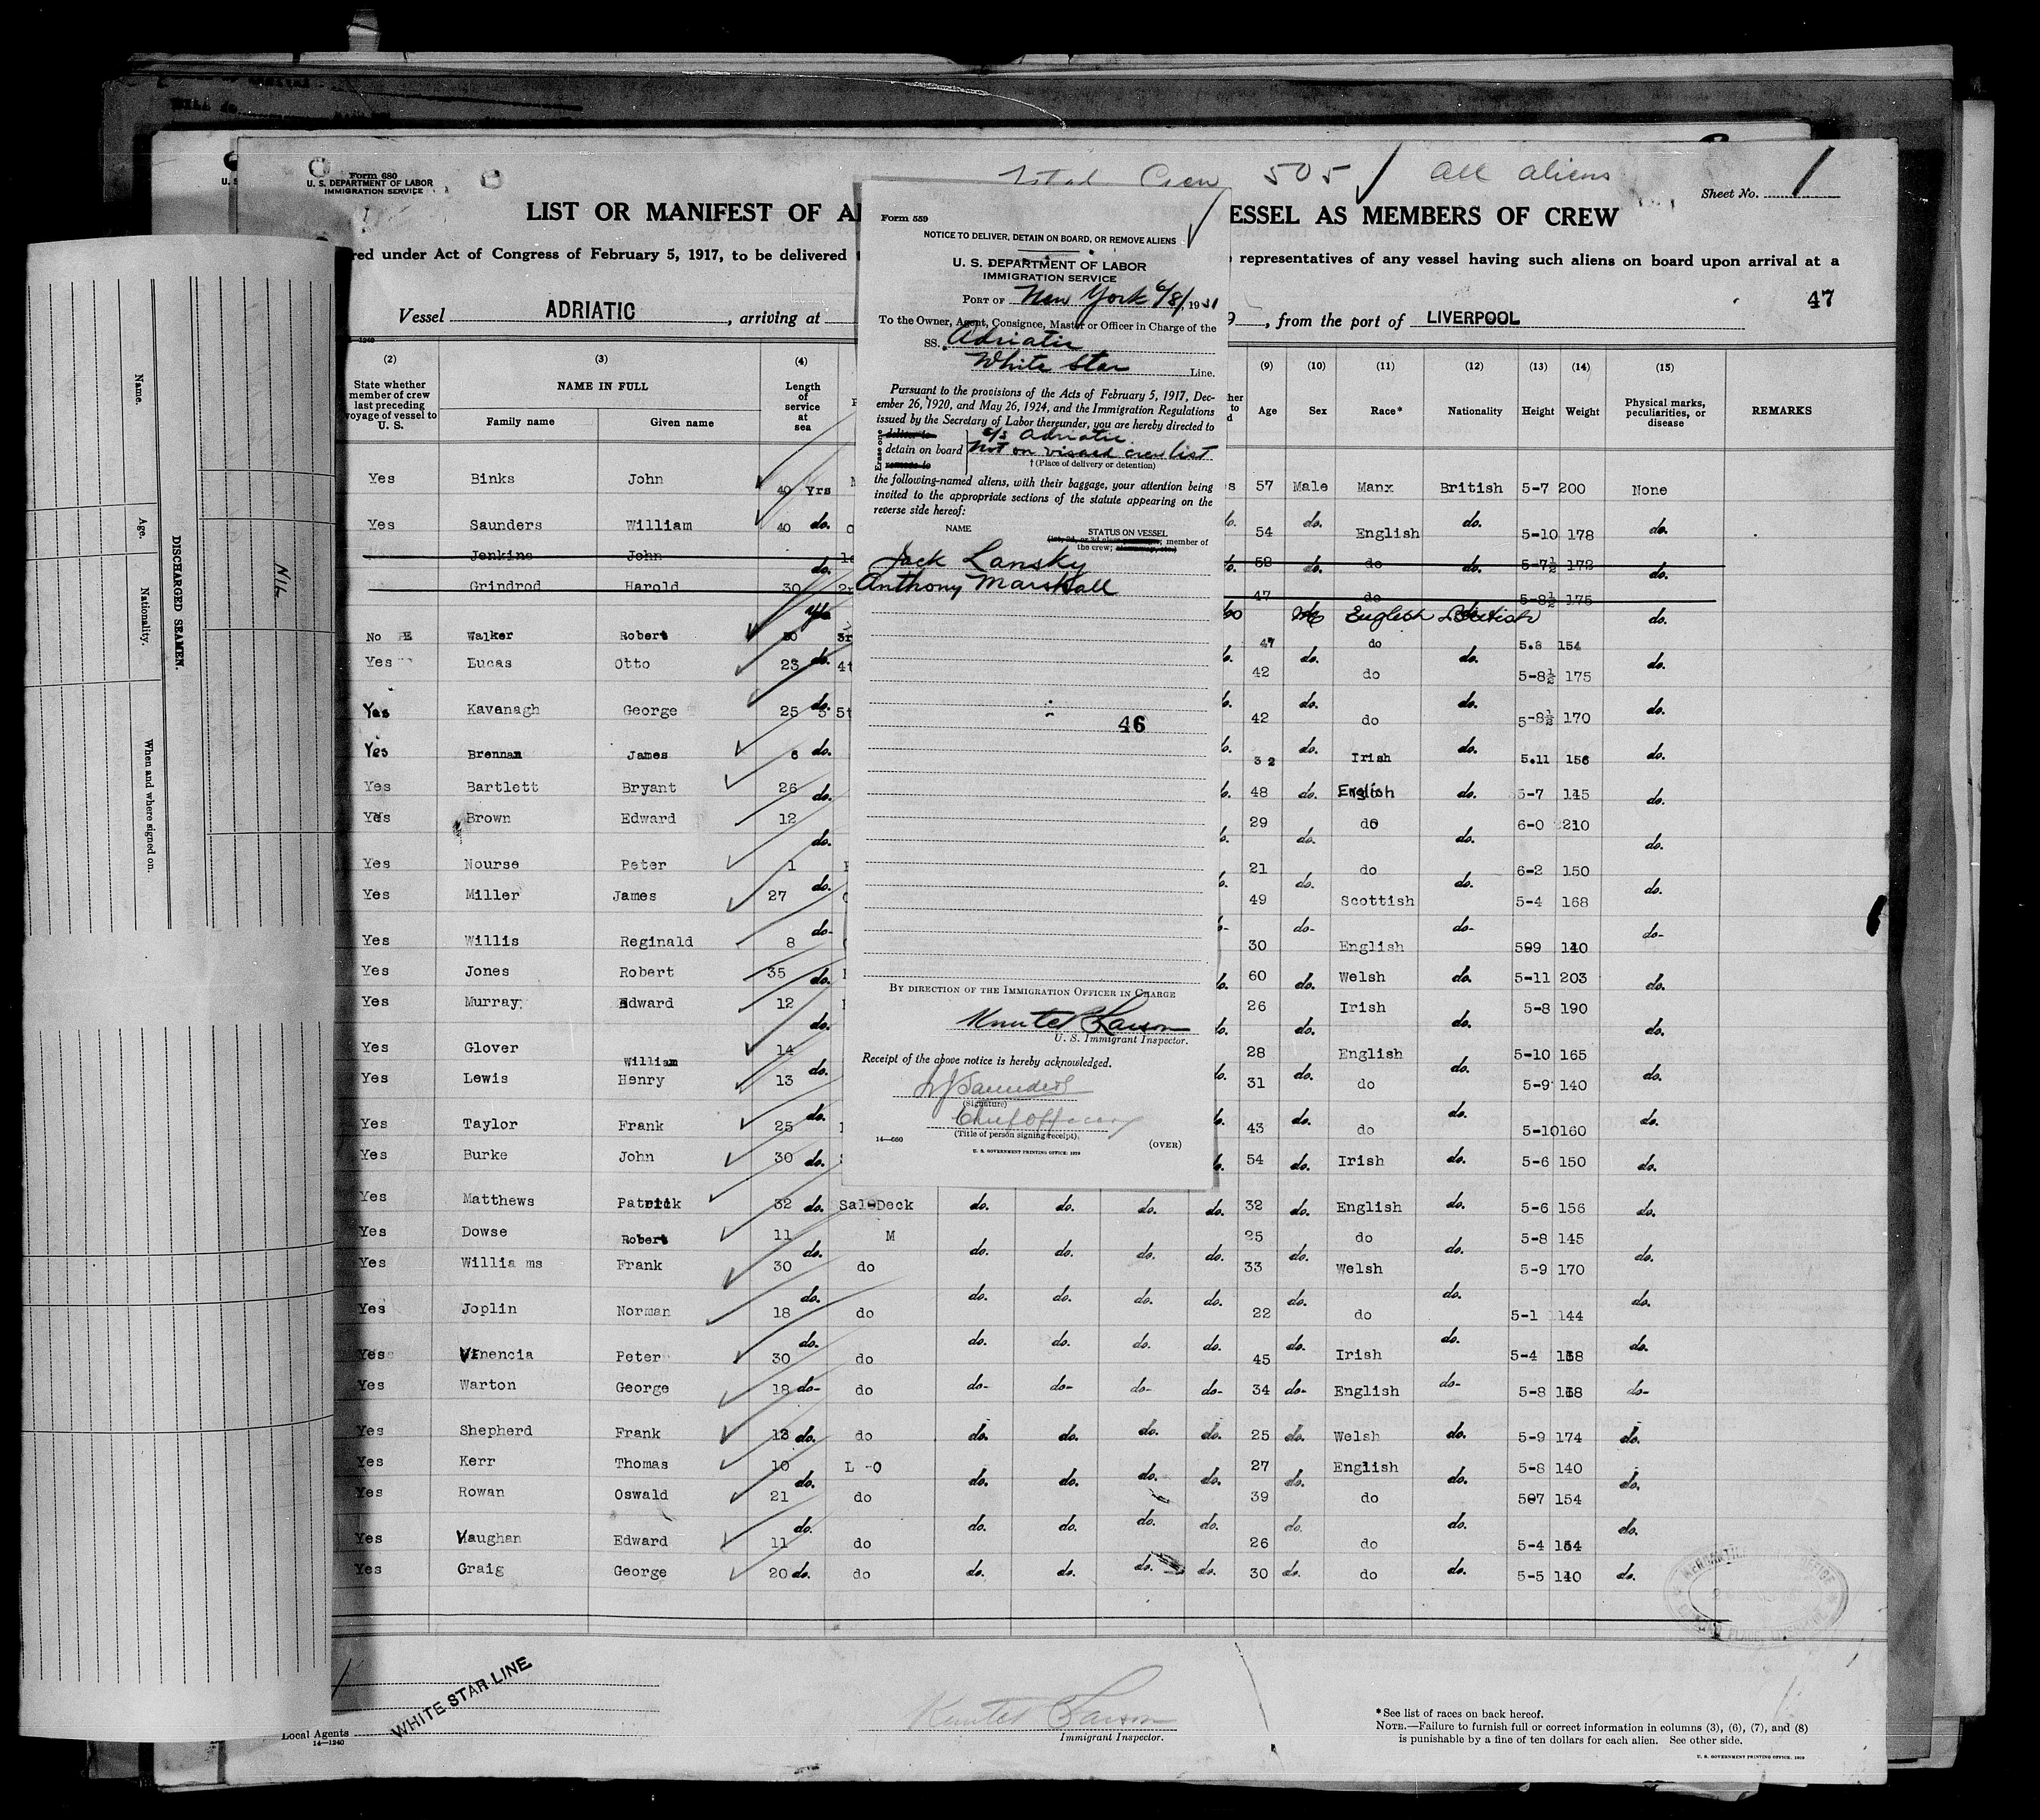 Form 680
U. S. DEPARTMENT OF LABOR
IMMIGRATION SERVICE
Total Crew 505 All aliens
Sheet No. 1
LIST OR MANIFEST OF AL
ESSEL AS MEMBERS OF CREW
red under Act of Congress of February 5, 1917, to be delivered
representatives of any vessel having such aliens on board upon arrival at a
47
Vessel ADRIATIC , arriving at
, from the port of LIVERPOOL
(2) (3) (4) (9) (10) (11) (12) (13) (14) (15)
State whether member of crew last preceding voyage of vessel to U. S.
NAME IN FULL
Family name Given name
Length of service at sea
Age Sex Race* Nationality Height Weight
Physical marks, peculiarities, or disease
REMARKS
Yes Binks John 40 Yrs 57 Male Manx British 5-7 200 None
Yes Saunders William 40 do. 54 do. English do. 5-10 178 do.
Jenkins John do. 58 do. do do. 5-7½ 178 do.
Grindrod Harold 30 47 do 5-8½ 175
English British do.
No E Walker Robert 30 3r 47 do 5.8 154
Yes Lucas Otto 23 do. 4t 42 do. do do. 5-8½ 175 do.
Yes Kavanagh George 25 do. 5t 42 do. do do. 5-8½ 170 do.
Yes Brennan James 6 do. 32 do. Irish do. 5.11 156 do.
Yes Bartlett Bryant 26 do. 48 do. English do. 5-7 145 do.
Yes Brown Edward 12 do. 29 do. do do. 6-0 210 do.
Yes Nourse Peter 1 do. 21 do. do do. 6-2 150 do.
Yes Miller James 27 49 Scottish 5-4 168
Yes Willis Reginald 8 do- 30 do- English do- 599 140 do-
Yes Jones Robert 35 do. 60 do. Welsh do. 5-11 203 do.
Yes Murray Edward 12 do. 26 do. Irish do. 5-8 190 do.
Yes Glover William 14 do. 28 do. English do. 5-10 165 do.
Yes Lewis Henry 13 31 do 5-9 140
Yes Taylor Frank 25 do. 43 do. do do. 5-10 160 do.
Yes Burke John 30 do. 54 do. Irish do. 5-6 150 do.
Yes Matthews Patrick 32 do. Sal-Deck do. do. do. do. 32 do. English do. 5-6 156 do.
Yes Dowse Robert 11 do. M do. do. do. do. 25 do. do do. 5-8 145 do.
Yes Willia ms Frank 30 do. do do. do. do. do. 33 do. Welsh do. 5-9 170 do.
Yes Joplin Norman 18 do. do do. do. do. do. 22 do. do do. 5-1 144 do.
Yes Vinencia Peter 30 do 45 Irish 5-4 138
Yes Warton George 18 do- do do- do- do- do- 34 do- English do- 5-8 138 do-
Yes Shepherd Frank 13 do. do do. do. do. do. 25 do. Welsh do. 5-9 174 do.
Yes Kerr Thomas 10 do. L -O do. do. do. do. 27 do. English do. 5-8 140 do.
Yes Rowan Oswald 21 do. do do. do. do. do. 39 do. do do. 507 154 do.
Yes Vaughan Edward 11 do 26 do 5-4 154
Yes Graig George 20 do. do do. do. do. do. 30 do. do do. 5-5 140 do.
WHITE STAR LINE
Local Agents
14—1240
Knute Larson
Immigrant Inspector.
*See list of races on back hereof.
NOTE.—Failure to furnish full or correct information in columns (3), (6), (7), and (8)
is punishable by a fine of ten dollars for each alien. See other side.
U. S. GOVERNMENT PRINTING OFFICE: 1929
Form 559
NOTICE TO DELIVER, DETAIN ON BOARD, OR REMOVE ALIENS
U. S. DEPARTMENT OF LABOR
IMMIGRATION SERVICE
PORT OF New York 6/8/, 1931
To the Owner, Agent, Consignee, Master or Officer in Charge of the
SS. Adriatic
White Star Line.
Pursuant to the provisions of the Acts of February 5, 1917, Dec-
ember 26, 1920, and May 26, 1924, and the Immigration Regulations
issued by the Secretary of Labor thereunder, you are hereby directed to
Erase one
deliver to
detain on board
remove to
s/s Adriatic
Not on visaed crew list
† (Place of delivery or detention)
the following-named aliens, with their baggage, your attention being
invited to the appropriate sections of the statute appearing on the
reverse side hereof:
NAME STATUS ON VESSEL
member of
the crew;
Jack Lansky
Anthony Marshall
46
BY DIRECTION OF THE IMMIGRATION OFFICER IN CHARGE
Knute Larson
U. S. Immigrant Inspector.
Receipt of the above notice is hereby acknowledged.
WJSaunders
(Signature)
Chief Officer
(Title of person signing receipt)
14—660
(OVER)
U. S. GOVERNMENT PRINTING OFFICE: 1929
DISCHARGED SEAMEN.
Name. Age. Nationality. When and where signed on.
NIL